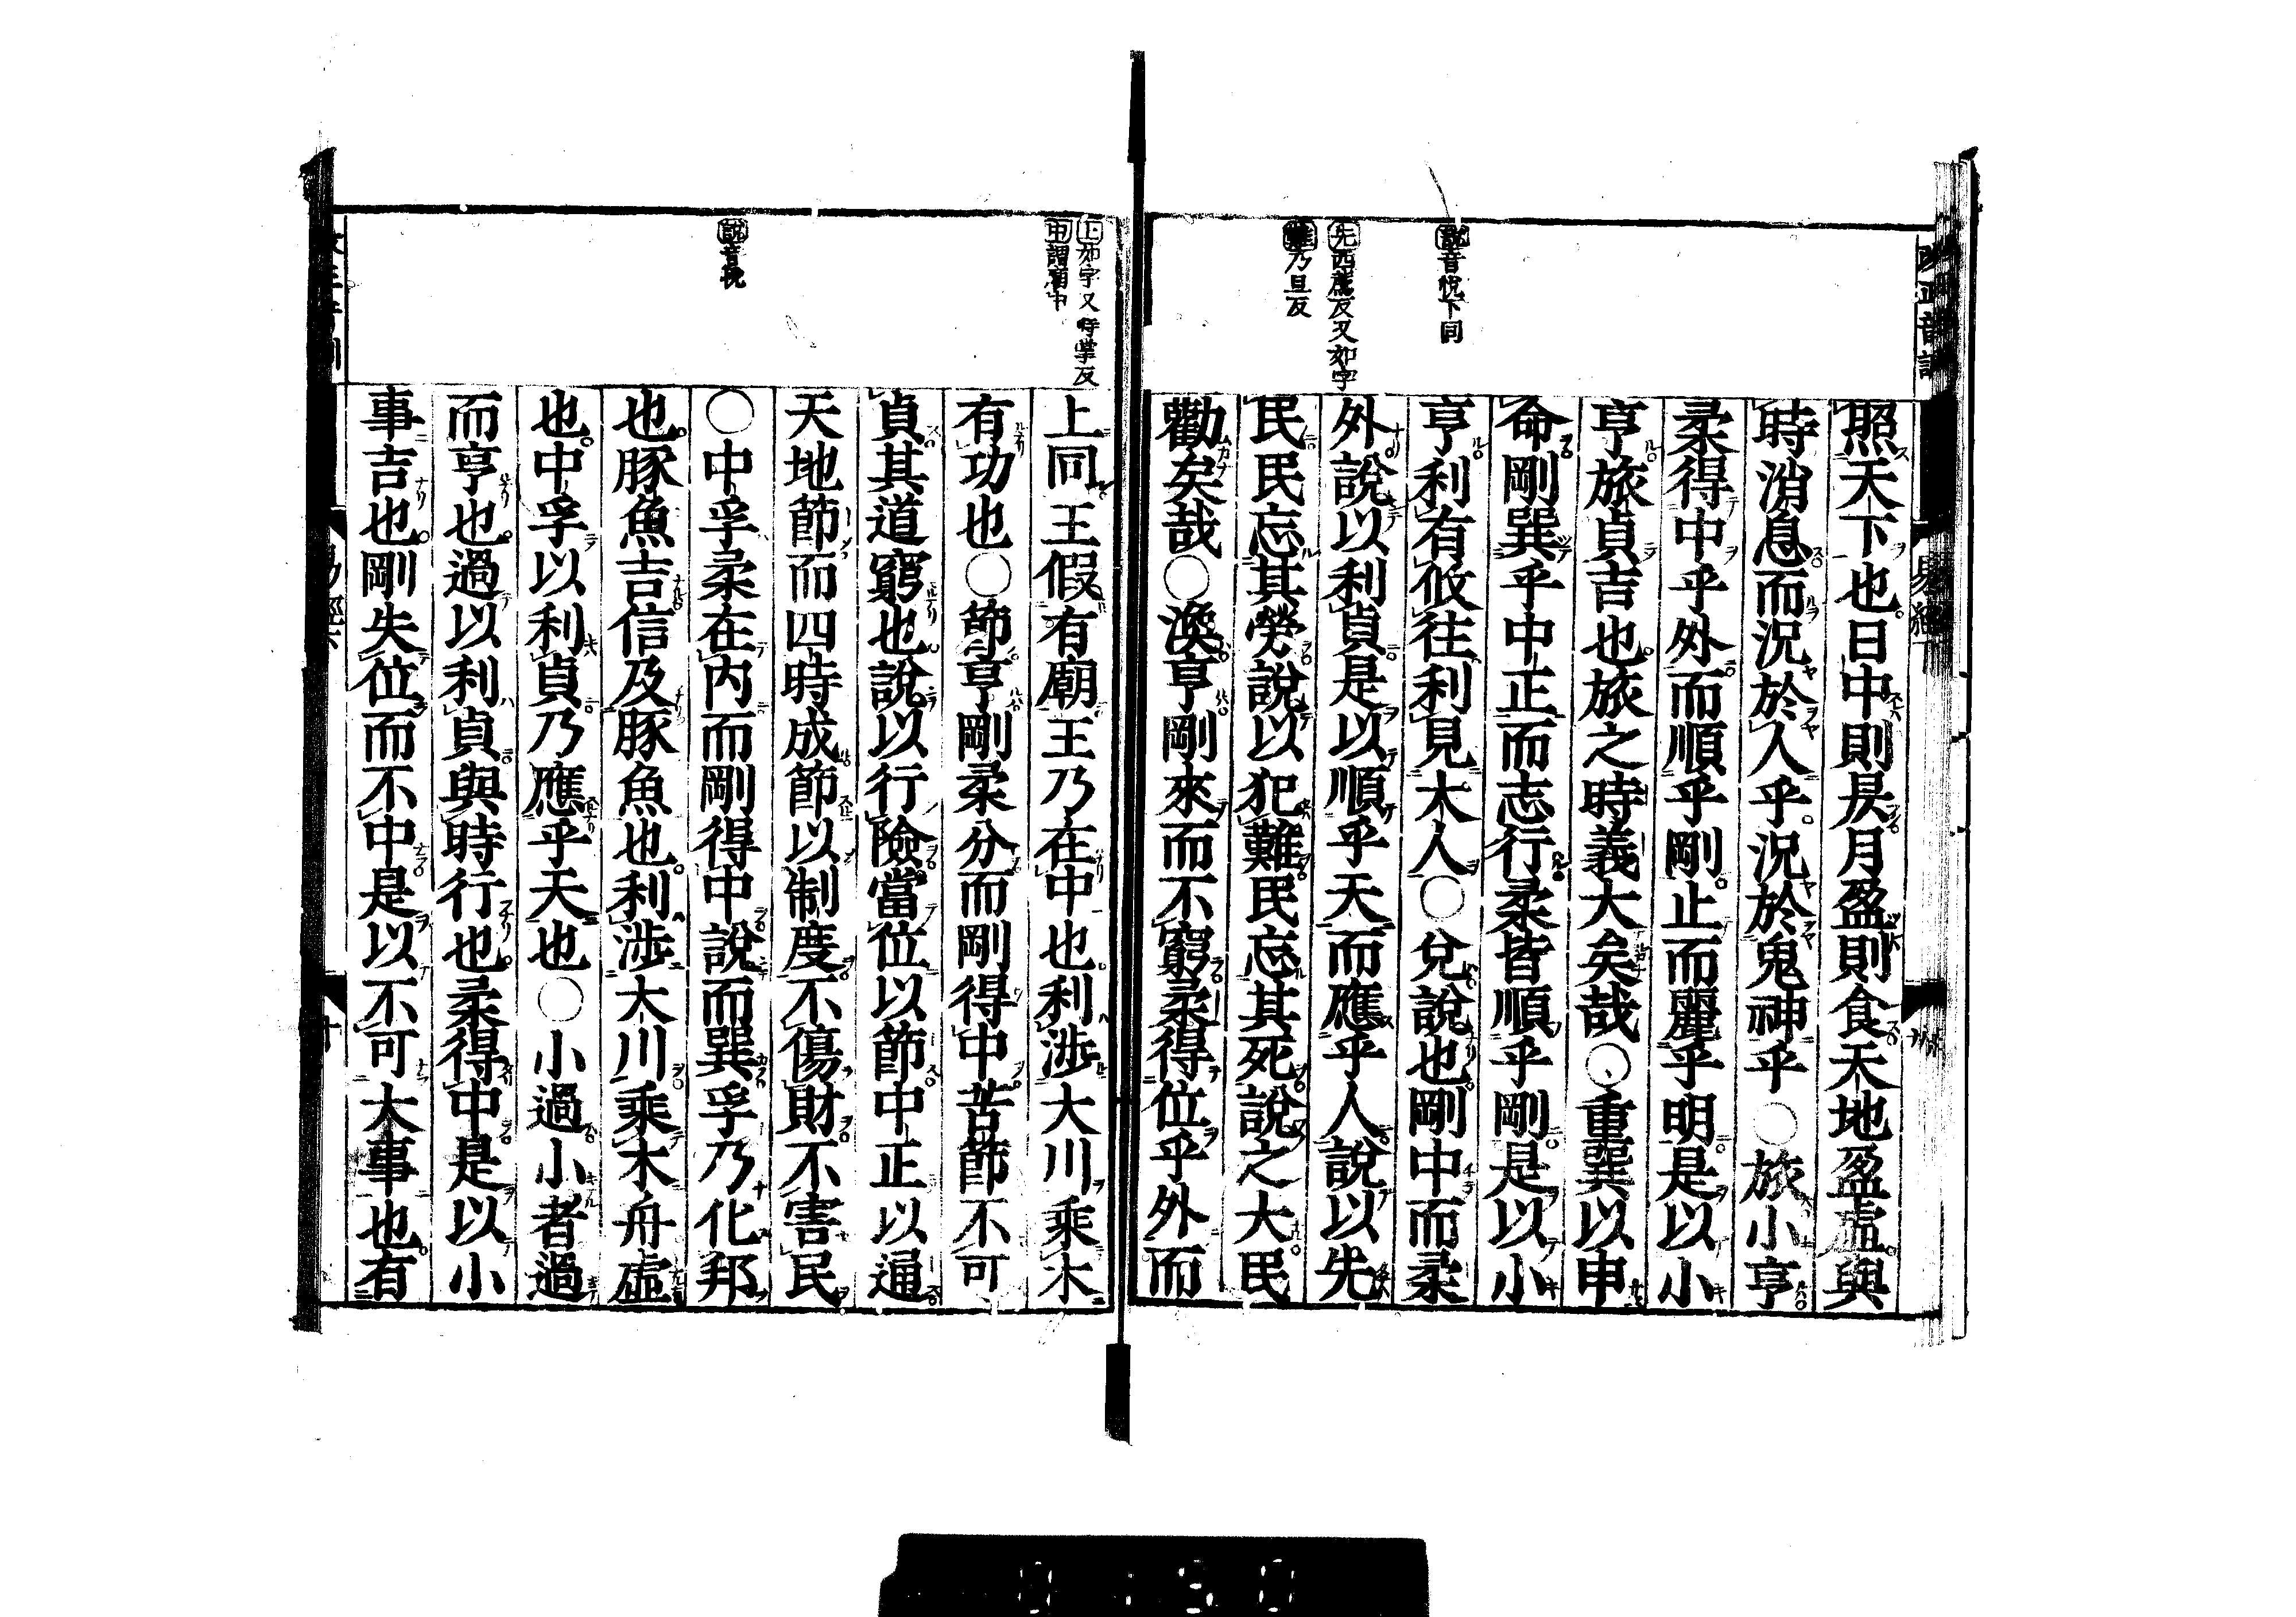 說音悅下同
先西薦反又如字
難乃旦反
照天下也日中則昃月盈則食天地盈虛與
時消息而況於人乎況於鬼神乎○旅小亨
柔得中乎外而順乎剛止而麗乎明是以小
亨旅貞吉也旅之時義大矣哉○重巽以申
命剛巽乎中正而志行柔皆順乎剛是以小
亨利有攸往利見大人○兌說也剛中而柔
外說以利貞是以順乎天而應乎人說以先
民民忘其勞說以犯難民忘其死說之大民
勸矣哉○渙亨剛來而不窮柔得位乎外而
上如字又時掌反
中謂廟中
說音悅
上同王假有廟王乃在中也利涉大川乘木
有功也○節亨剛柔分而剛得中苦節不可
貞其道窮也說以行險當位以節中正以通
天地節而四時成節以制度不傷財不害民
○中孚柔在內而剛得中說而巽孚乃化邦
也豚魚吉信及豚魚也利涉大川乘木舟虛
也中孚以利貞乃應乎天也○小過小者過
而亨也過以利貞與時行也柔得中是以小
事吉也剛失位而不中是以不可大事也有